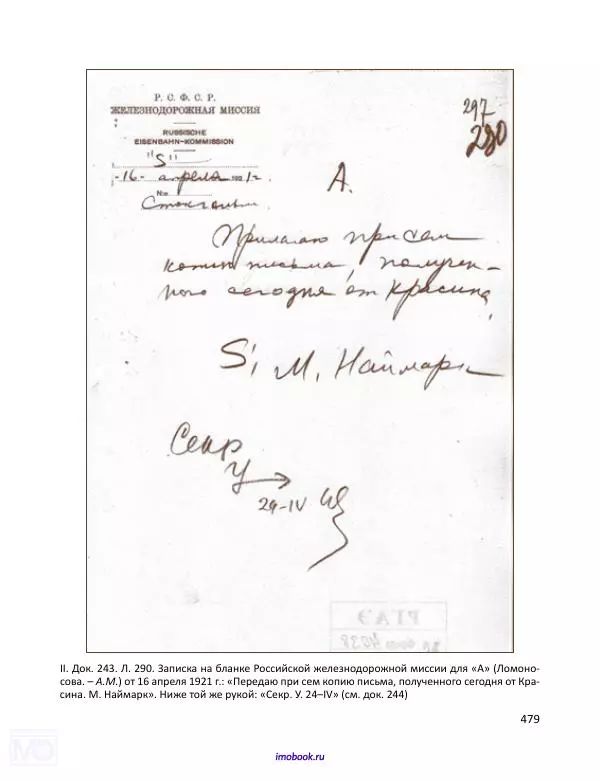 297
280
Р. С. Ф. С. Р.
ЖЕЛЕЗНОДОРОЖНАЯ МИССИЯ
RUSSISCHE
EISENBAHN-KOMMISSION
"S"
-16- апреля 1921 г.
№
Стокгольм
А.
Прилагаю при сем
копию письма, получен-
ного сегодня от Красина,
S, М. Наймарк
Секр
У
29-IV
РГАЭ
II. Док. 243. Л. 290. Записка на бланке Российской железнодорожной миссии для «А» (Ломоно-
сова. – А.М.) от 16 апреля 1921 г.: «Передаю при сем копию письма, полученного сегодня от Кра-
сина. М. Наймарк». Ниже той же рукой: «Секр. У. 24–IV» (см. док. 244)
479
imobook.ru